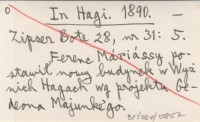 0
In Hagi. 1890. —
Zipser Bote 28, nr 31: 5.
Ferenc Máriássy po-
stawił nowy budynek w Wyż-
nich Hagach wg projektu Ge-
deona Majunke'go.